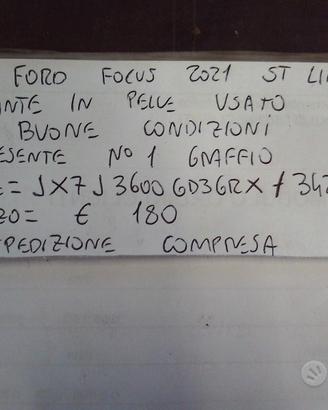 FORD FOCUS 2021 ST LI
ANTE IN PELLE USATO
BUONE CONDIZIONI
ESENTE NO 1 GRAFFIO
E= JX7J3600GD3GRX / 342
ZO= € 180
PEDIZIONE COMPRESA